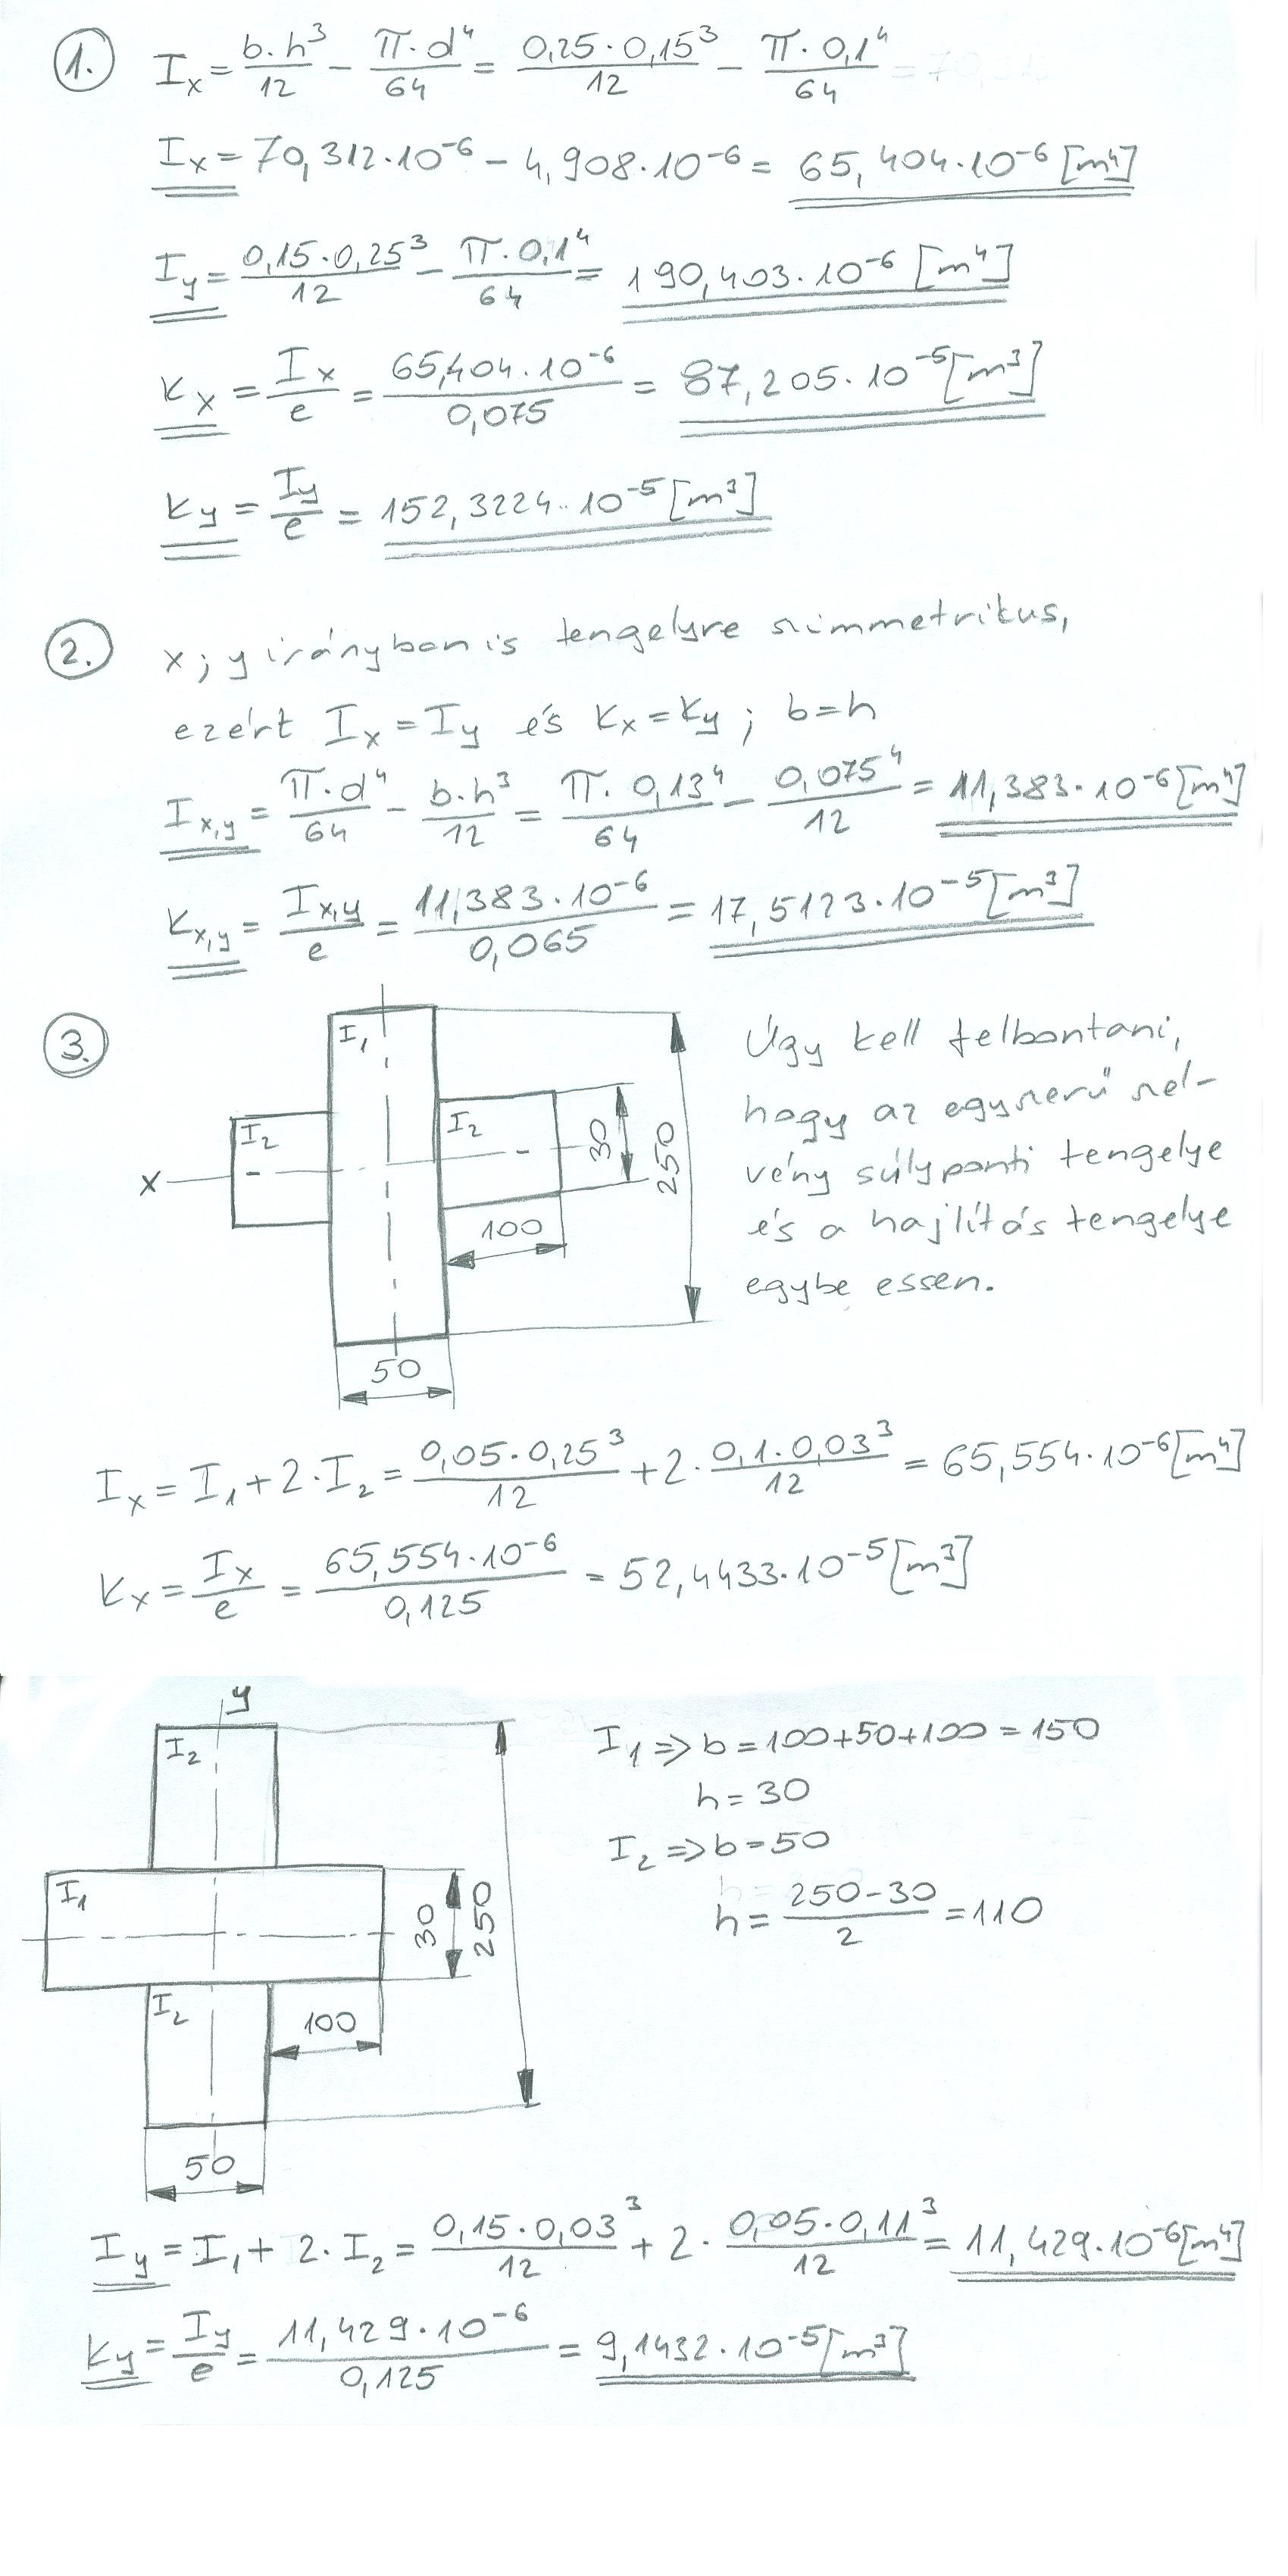 1. Ix = b·h³/12 - π·d⁴/64 = 0,25·0,15³/12 - π·0,1⁴/64
Ix = 70,312·10⁻⁶ - 4,908·10⁻⁶ = 65,404·10⁻⁶ [m⁴]
Iy = 0,15·0,25³/12 - π·0,1⁴/64 = 190,403·10⁻⁶ [m⁴]
Kx = Ix/e = 65,404·10⁻⁶/0,075 = 87,205·10⁻⁵ [m³]
Ky = Iy/e = 152,3224·10⁻⁵ [m³]
2. x; y irányban is tengelyre szimmetrikus,
ezért Ix = Iy és Kx = Ky; b=h
Ix,y = π·d⁴/64 - b·h³/12 = π·0,13⁴/64 - 0,075⁴/12 = 11,383·10⁻⁶ [m⁴]
Kx,y = Ix,y/e = 11,383·10⁻⁶/0,065 = 17,5123·10⁻⁵ [m³]
3.
I₁
I₂
I₂
x
30
250
100
50
Úgy kell felbontani,
hogy az egyszerű szel-
vény súlyponti tengelye
és a hajlítás tengelye
egybe essen.
Ix = I₁ + 2·I₂ = 0,05·0,25³/12 + 2·0,1·0,03³/12 = 65,554·10⁻⁶ [m⁴]
Kx = Ix/e = 65,554·10⁻⁶/0,125 = 52,4433·10⁻⁵ [m³]
y
I₂
I₁
I₂
30
250
100
50
I₁ => b = 100+50+100 = 150
h = 30
I₂ => b = 50
h = 250-30/2 = 110
Iy = I₁ + 2·I₂ = 0,15·0,03³/12 + 2·0,05·0,11³/12 = 11,429·10⁻⁶ [m⁴]
Ky = Iy/e = 11,429·10⁻⁶/0,125 = 9,1432·10⁻⁵ [m³]